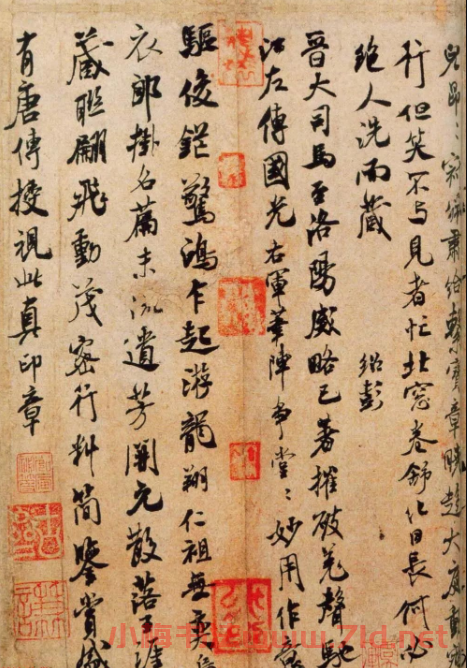 寶章
行但笑不与見者忙北窓卷舒化日長何必
絶人洗而藏
紹彭
晉大司馬至洛陽威略已著摧破羌聲馳
江左傳國光右軍筆陣爭堂〻妙用作
驅俊鋩驚鴻乍起游龍翔仁祖無奕
衣郎掛名篇末流遺芳開元散落
藏聯翩飛動茂密行料簡鑒賞
有唐傳授視此真印章
www.7ld.net